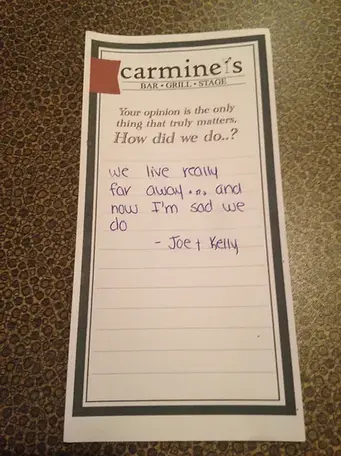 carmine's
BAR • GRILL • STAGE
Your opinion is the only
thing that truly matters.
How did we do..?
we live really
far away... and
now I'm sad we
do
- Joe + Kelly